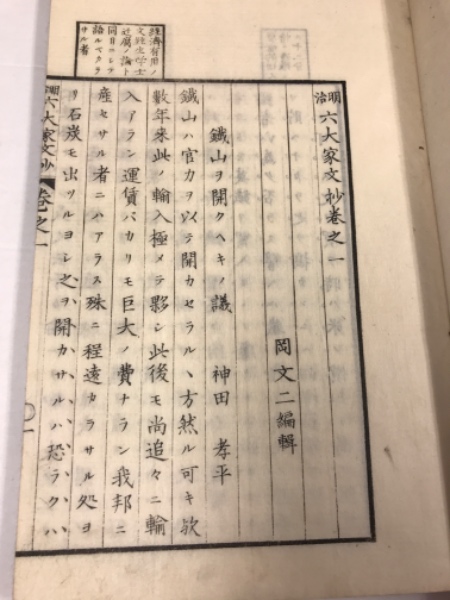 明治六大家文抄卷之一
岡文二編輯
鐵山ヲ開クヘキノ議　神田孝平
鐵山ハ官力ヲ以テ開カセラルヽ方然ル可キ歟
數年來此ノ輸入極メテ夥シ此後モ尚追々ニ輸
入アラン運賃バカリモ巨大ノ費ナラン我邦ニ
産セサル者ニハアラス殊ニ程遠カラサル処ヨ
リ石炭モ出ツルヨシ之ヲ開カサルハ恐ラクハ
經濟有用ノ
同日ニシテ
語ルベカラ
サル者
明治六大家文抄 卷之一